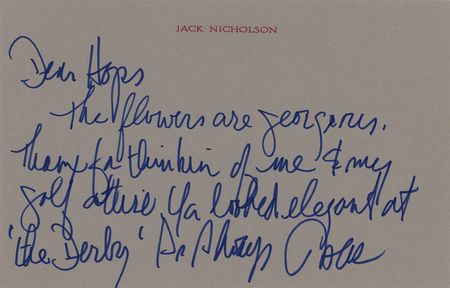 JACK NICHOLSON
Dear Hops
The flowers are georgeous.
Thanx for thinkin of me & my
golf attire Ya looked elegant at
'the Derby' As Always